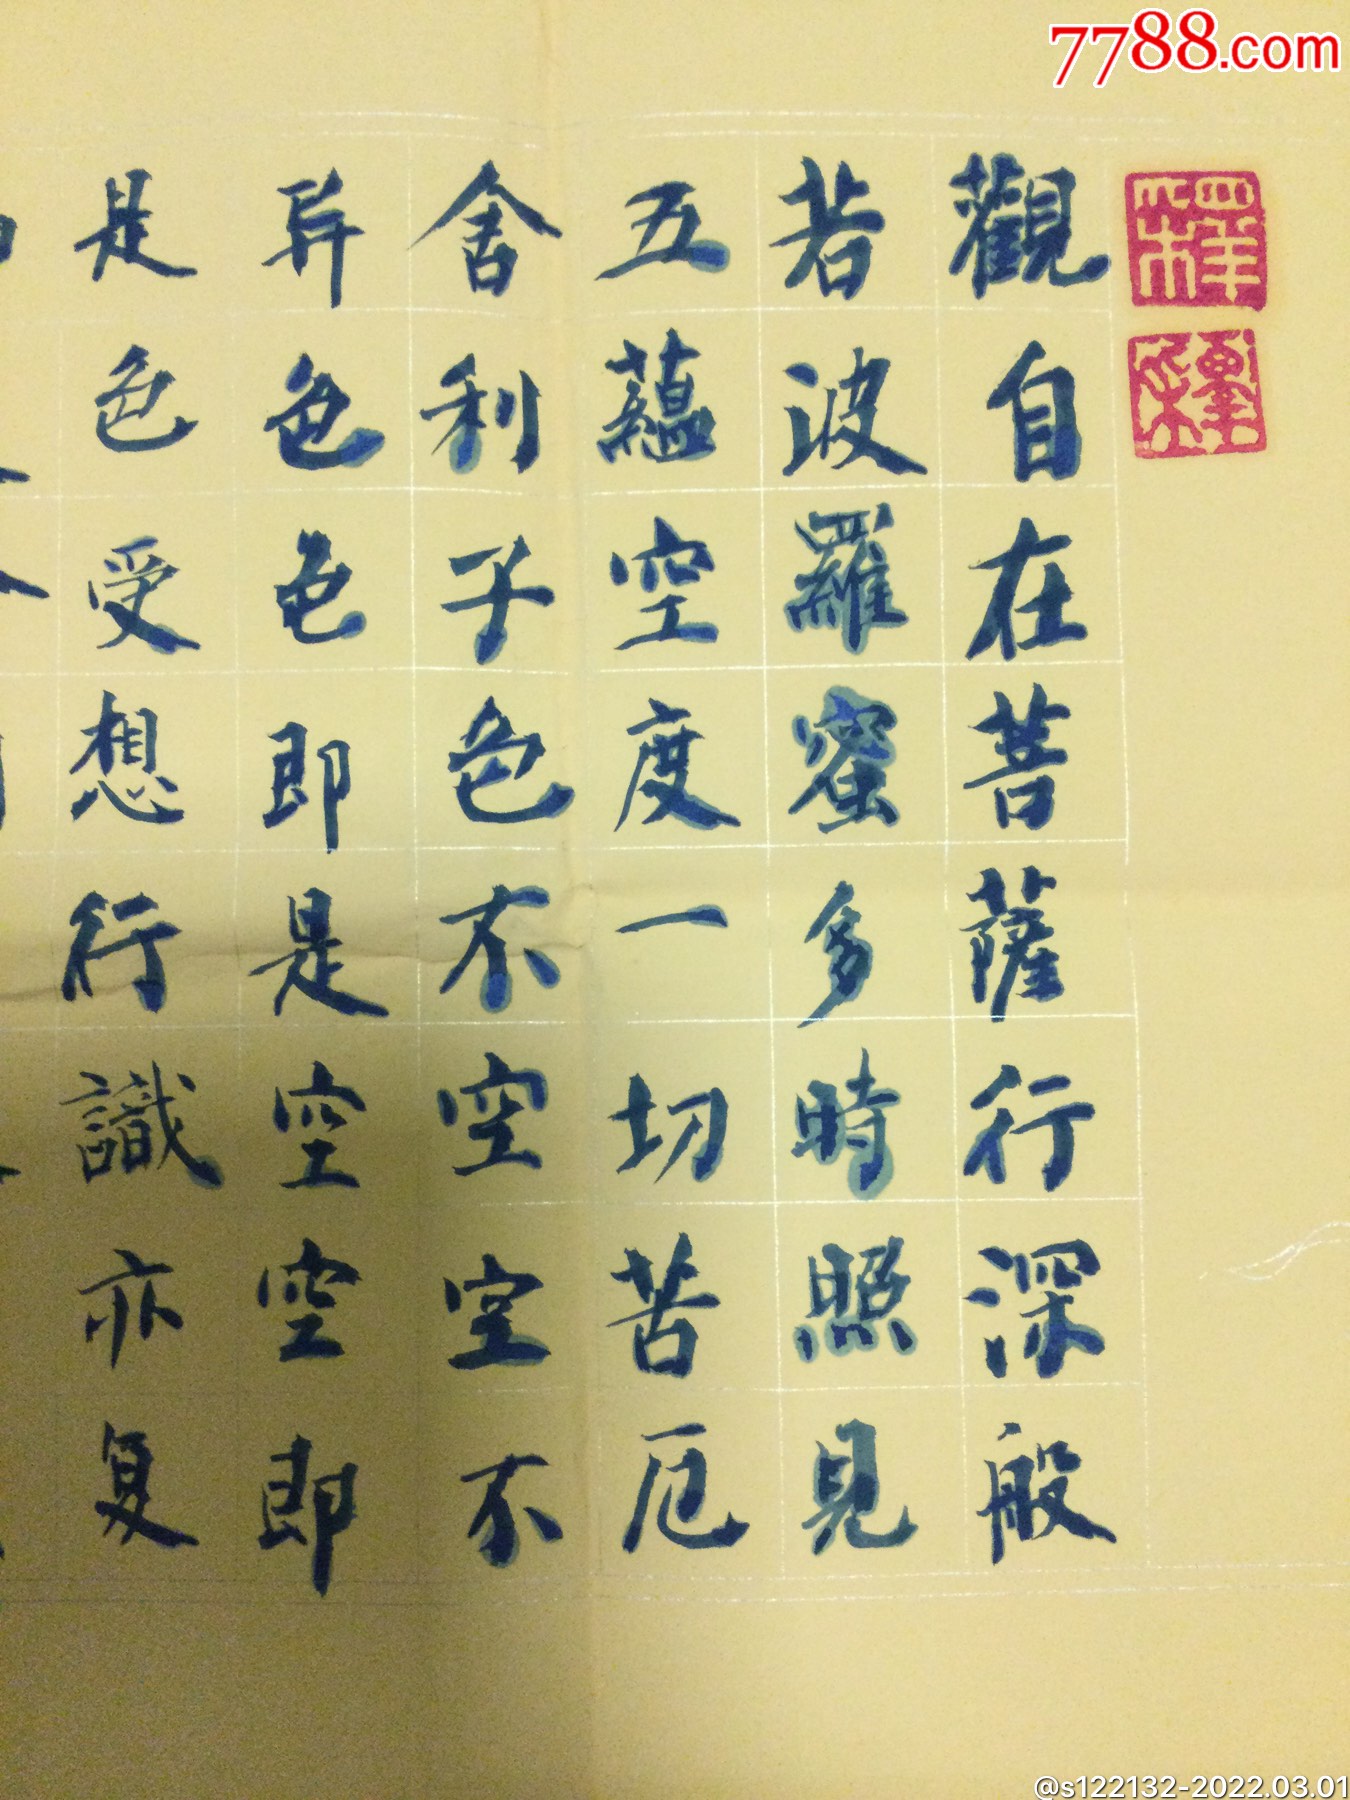 7788.com
觀自在菩薩行深般
若波羅蜜多時照見
五蘊空度一切苦厄
舍利子色不空空不
异色色即是空空即
是色受想行識亦复
@s122132-2022.03.01